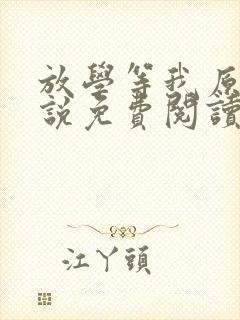 放學等我原
說免費閱讀
江丫頭